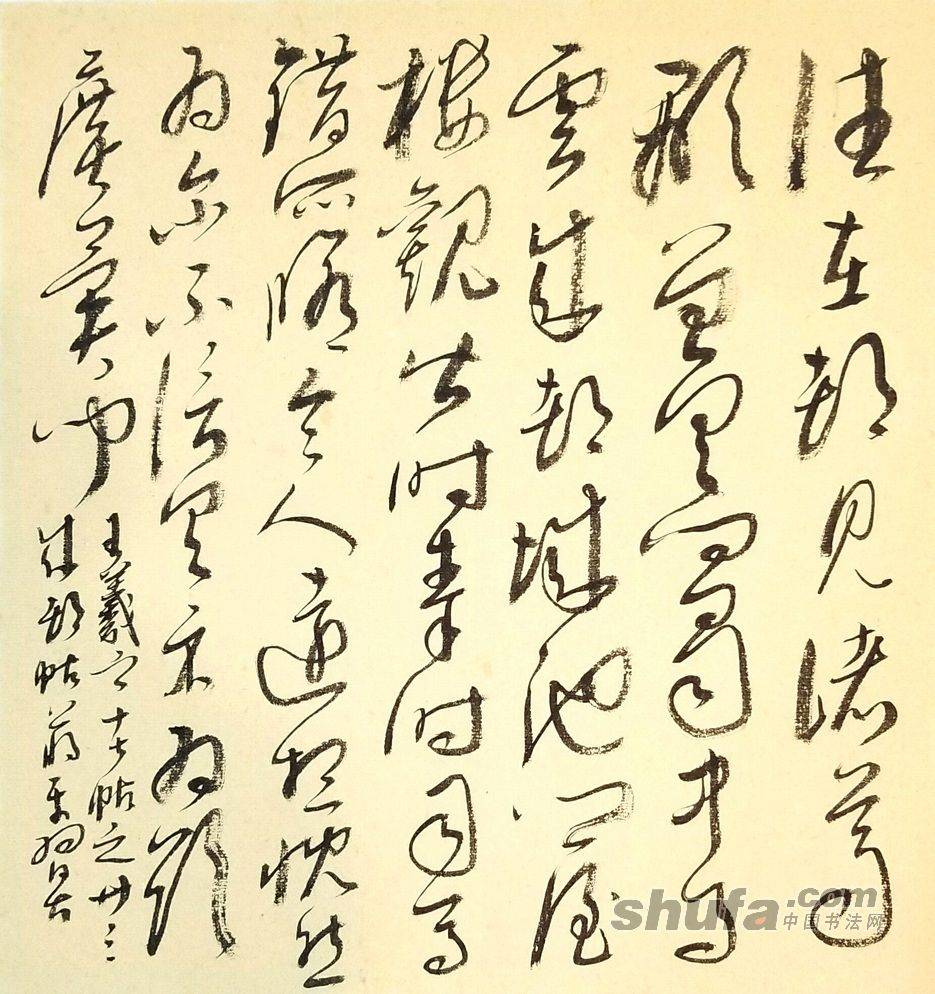 往在都見諸葛
顒曾具問蜀中事
雲成都城池門屋
樓觀皆時秦時司馬
錯所脩令人遠想慨然
為尔不信具示為欲
廣異聞
王羲之十七帖之廿三
成都帖
shufa.com
中国书法网